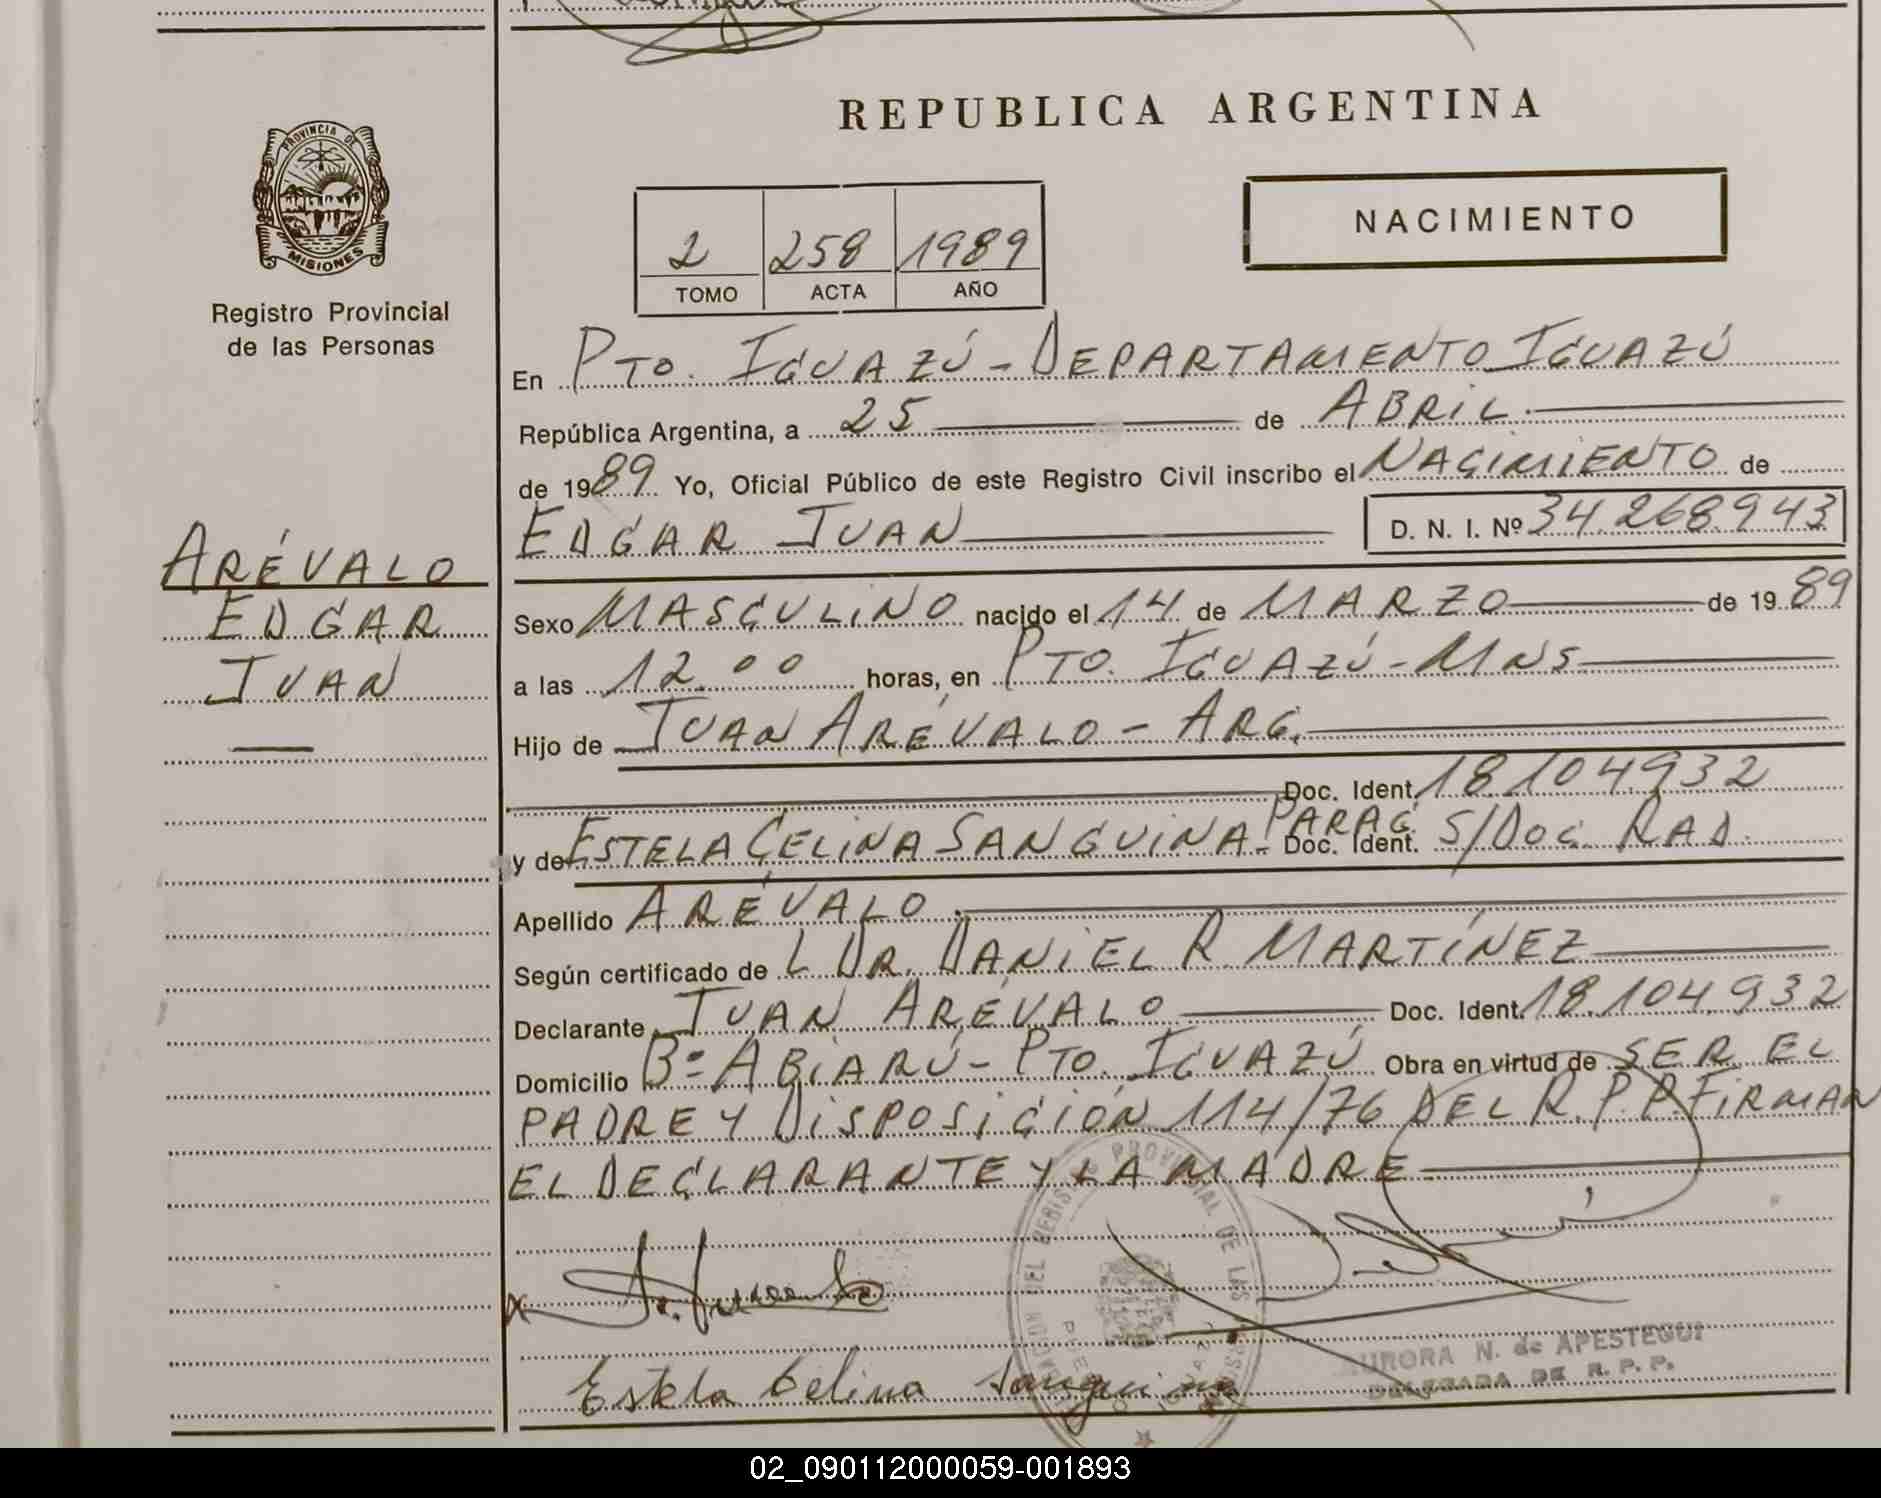 REPUBLICA ARGENTINA
PROVINCIA DE
MISIONES
Registro Provincial
de las Personas
2 258 1989
TOMO ACTA AÑO
NACIMIENTO
En PTO. IGUAZÚ - DEPARTAMENTO IGUAZÚ
República Argentina, a 25 de ABRIL.
de 1989 Yo, Oficial Público de este Registro Civil inscribo el NACIMIENTO de
EDGAR IVAN D. N. I. Nº 34.268.943
ARÉVALO
EDGAR
IVAN
Sexo MASCULINO nacido el 14 de MARZO de 1989
a las 12.00 horas, en PTO. IGUAZÚ - MNS
Hijo de JUAN ARÉVALO - ARG.
Doc. Ident. 18.104.932
y de ESTELA CELINA SANGUINA - PARAG. Doc. Ident. S/DOC. RAD.
Apellido ARÉVALO.
Según certificado de L DR. DANIEL R. MARTÍNEZ
Declarante JUAN ARÉVALO Doc. Ident. 18.104.932
Domicilio Bº ABIARÚ - PTO. IGUAZÚ Obra en virtud de SER EL
PADRE Y DISPOSICIÓN 114/76 DEL R.P.P. FIRMAN
EL DECLARANTE Y LA MADRE
Estela Celina Sanguina
AURORA N. de APESTEGUI
DELEGADA DE R. P. P.
02_090112000059-001893